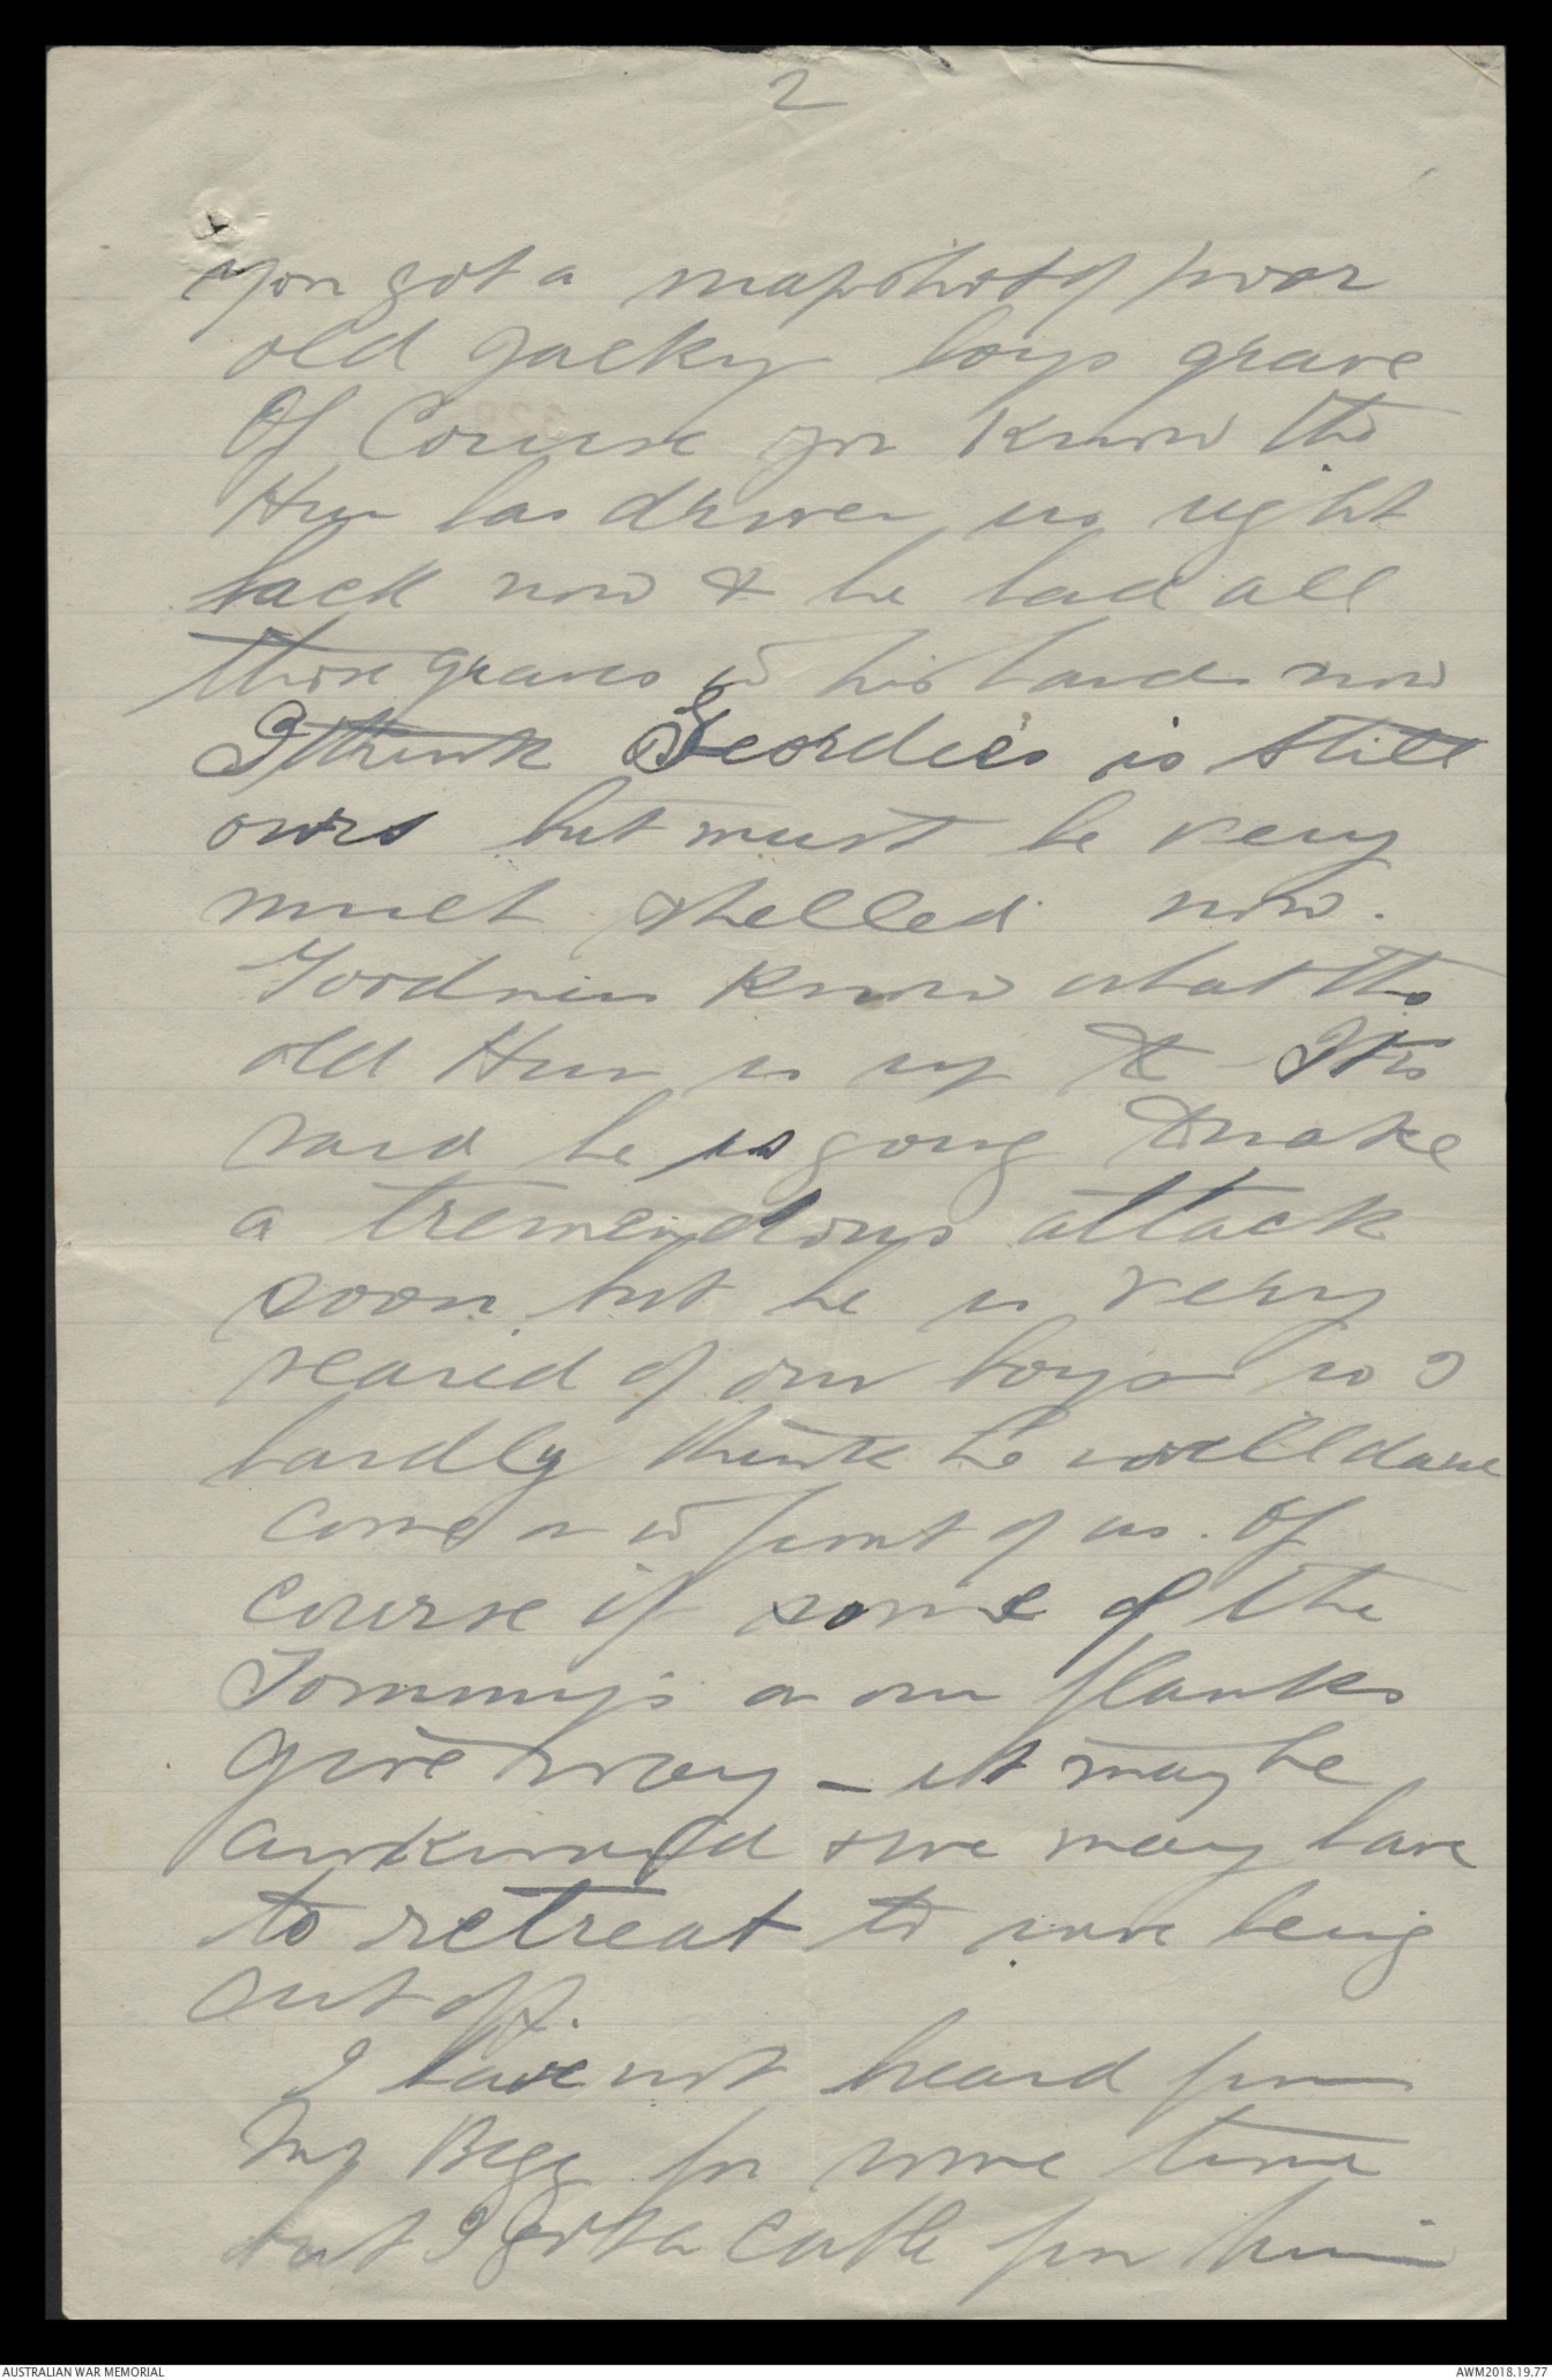 2
you got a snapshot of poor
old Jacky boys grave
Of Course you know the
Hun has driven us right
back now & he had all
those graves in his hands now
I think Geordie's is still
ours but must be very
much shelled now.
Goodness knows what the
old Hun is up to - It is
said he is going to make
a tremendous attack
soon but he is very
scared of our boys so I
hardly think he will dare
come on in front of us. Of
course if some of the
Tommys on our flanks
give way - it may be
awkward & we may have
to retreat to save being
cut off.
I have not heard from
Mr Begg for some time
but I got a cable from him
AUSTRALIAN WAR MEMORIAL
AWM2018.19.77